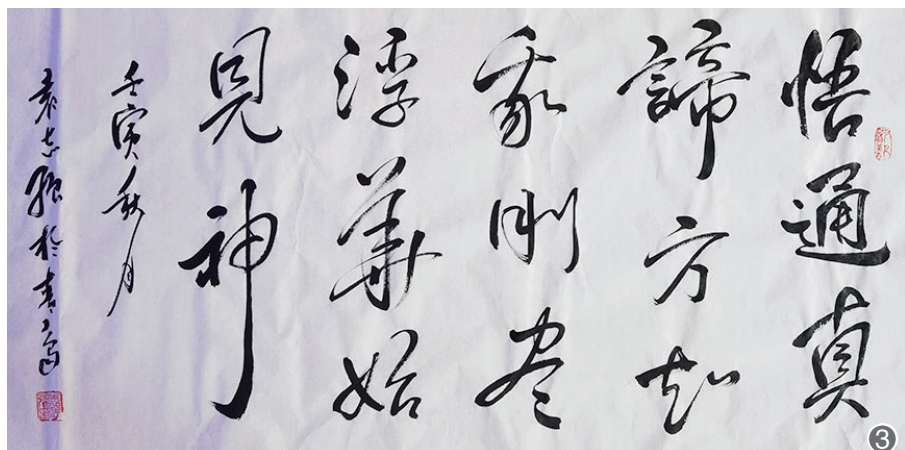 悟通真
諦方知
我刪尽
浮華始
見神
壬寅秋月
袁志强於青島